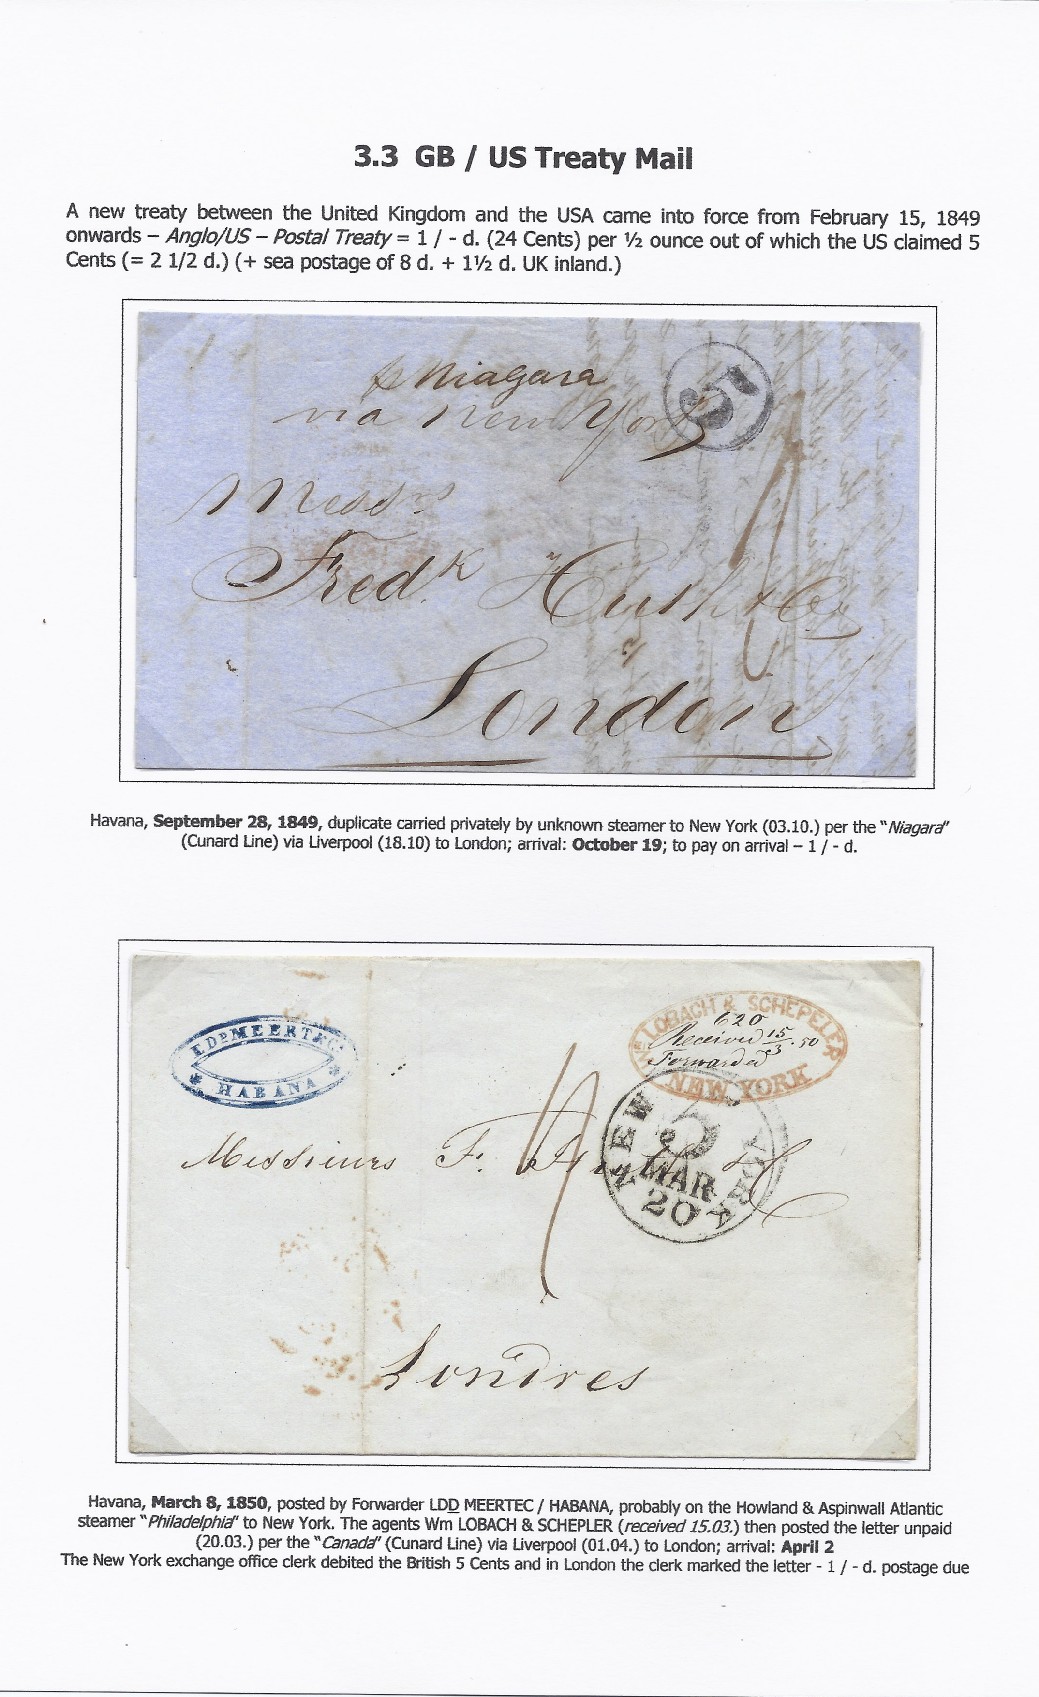 3.3 GB / US Treaty Mail
A new treaty between the United Kingdom and the USA came into force from February 15, 1849
onwards – Anglo/US – Postal Treaty = 1 / - d. (24 Cents) per ½ ounce out of which the US claimed 5
Cents (= 2 1/2 d.) (+ sea postage of 8 d. + 1½ d. UK inland.)
p Niagara
via New York
5
Messrs
Fredk Huth & Co
London
Havana, September 28, 1849, duplicate carried privately by unknown steamer to New York (03.10.) per the "Niagara"
(Cunard Line) via Liverpool (18.10) to London; arrival: October 19; to pay on arrival – 1 / - d.
HABANA
Wm LOBACH & SCHEPELER
620
Received 15/3.50
Forwarded
NEW YORK
NEW YORK
5
MAR
20
Messieurs F. Huth & C
Londres
Havana, March 8, 1850, posted by Forwarder LDD MEERTEC / HABANA, probably on the Howland & Aspinwall Atlantic
steamer "Philadelphia" to New York. The agents Wm LOBACH & SCHEPLER (received 15.03.) then posted the letter unpaid
(20.03.) per the "Canada" (Cunard Line) via Liverpool (01.04.) to London; arrival: April 2
The New York exchange office clerk debited the British 5 Cents and in London the clerk marked the letter - 1 / - d. postage due